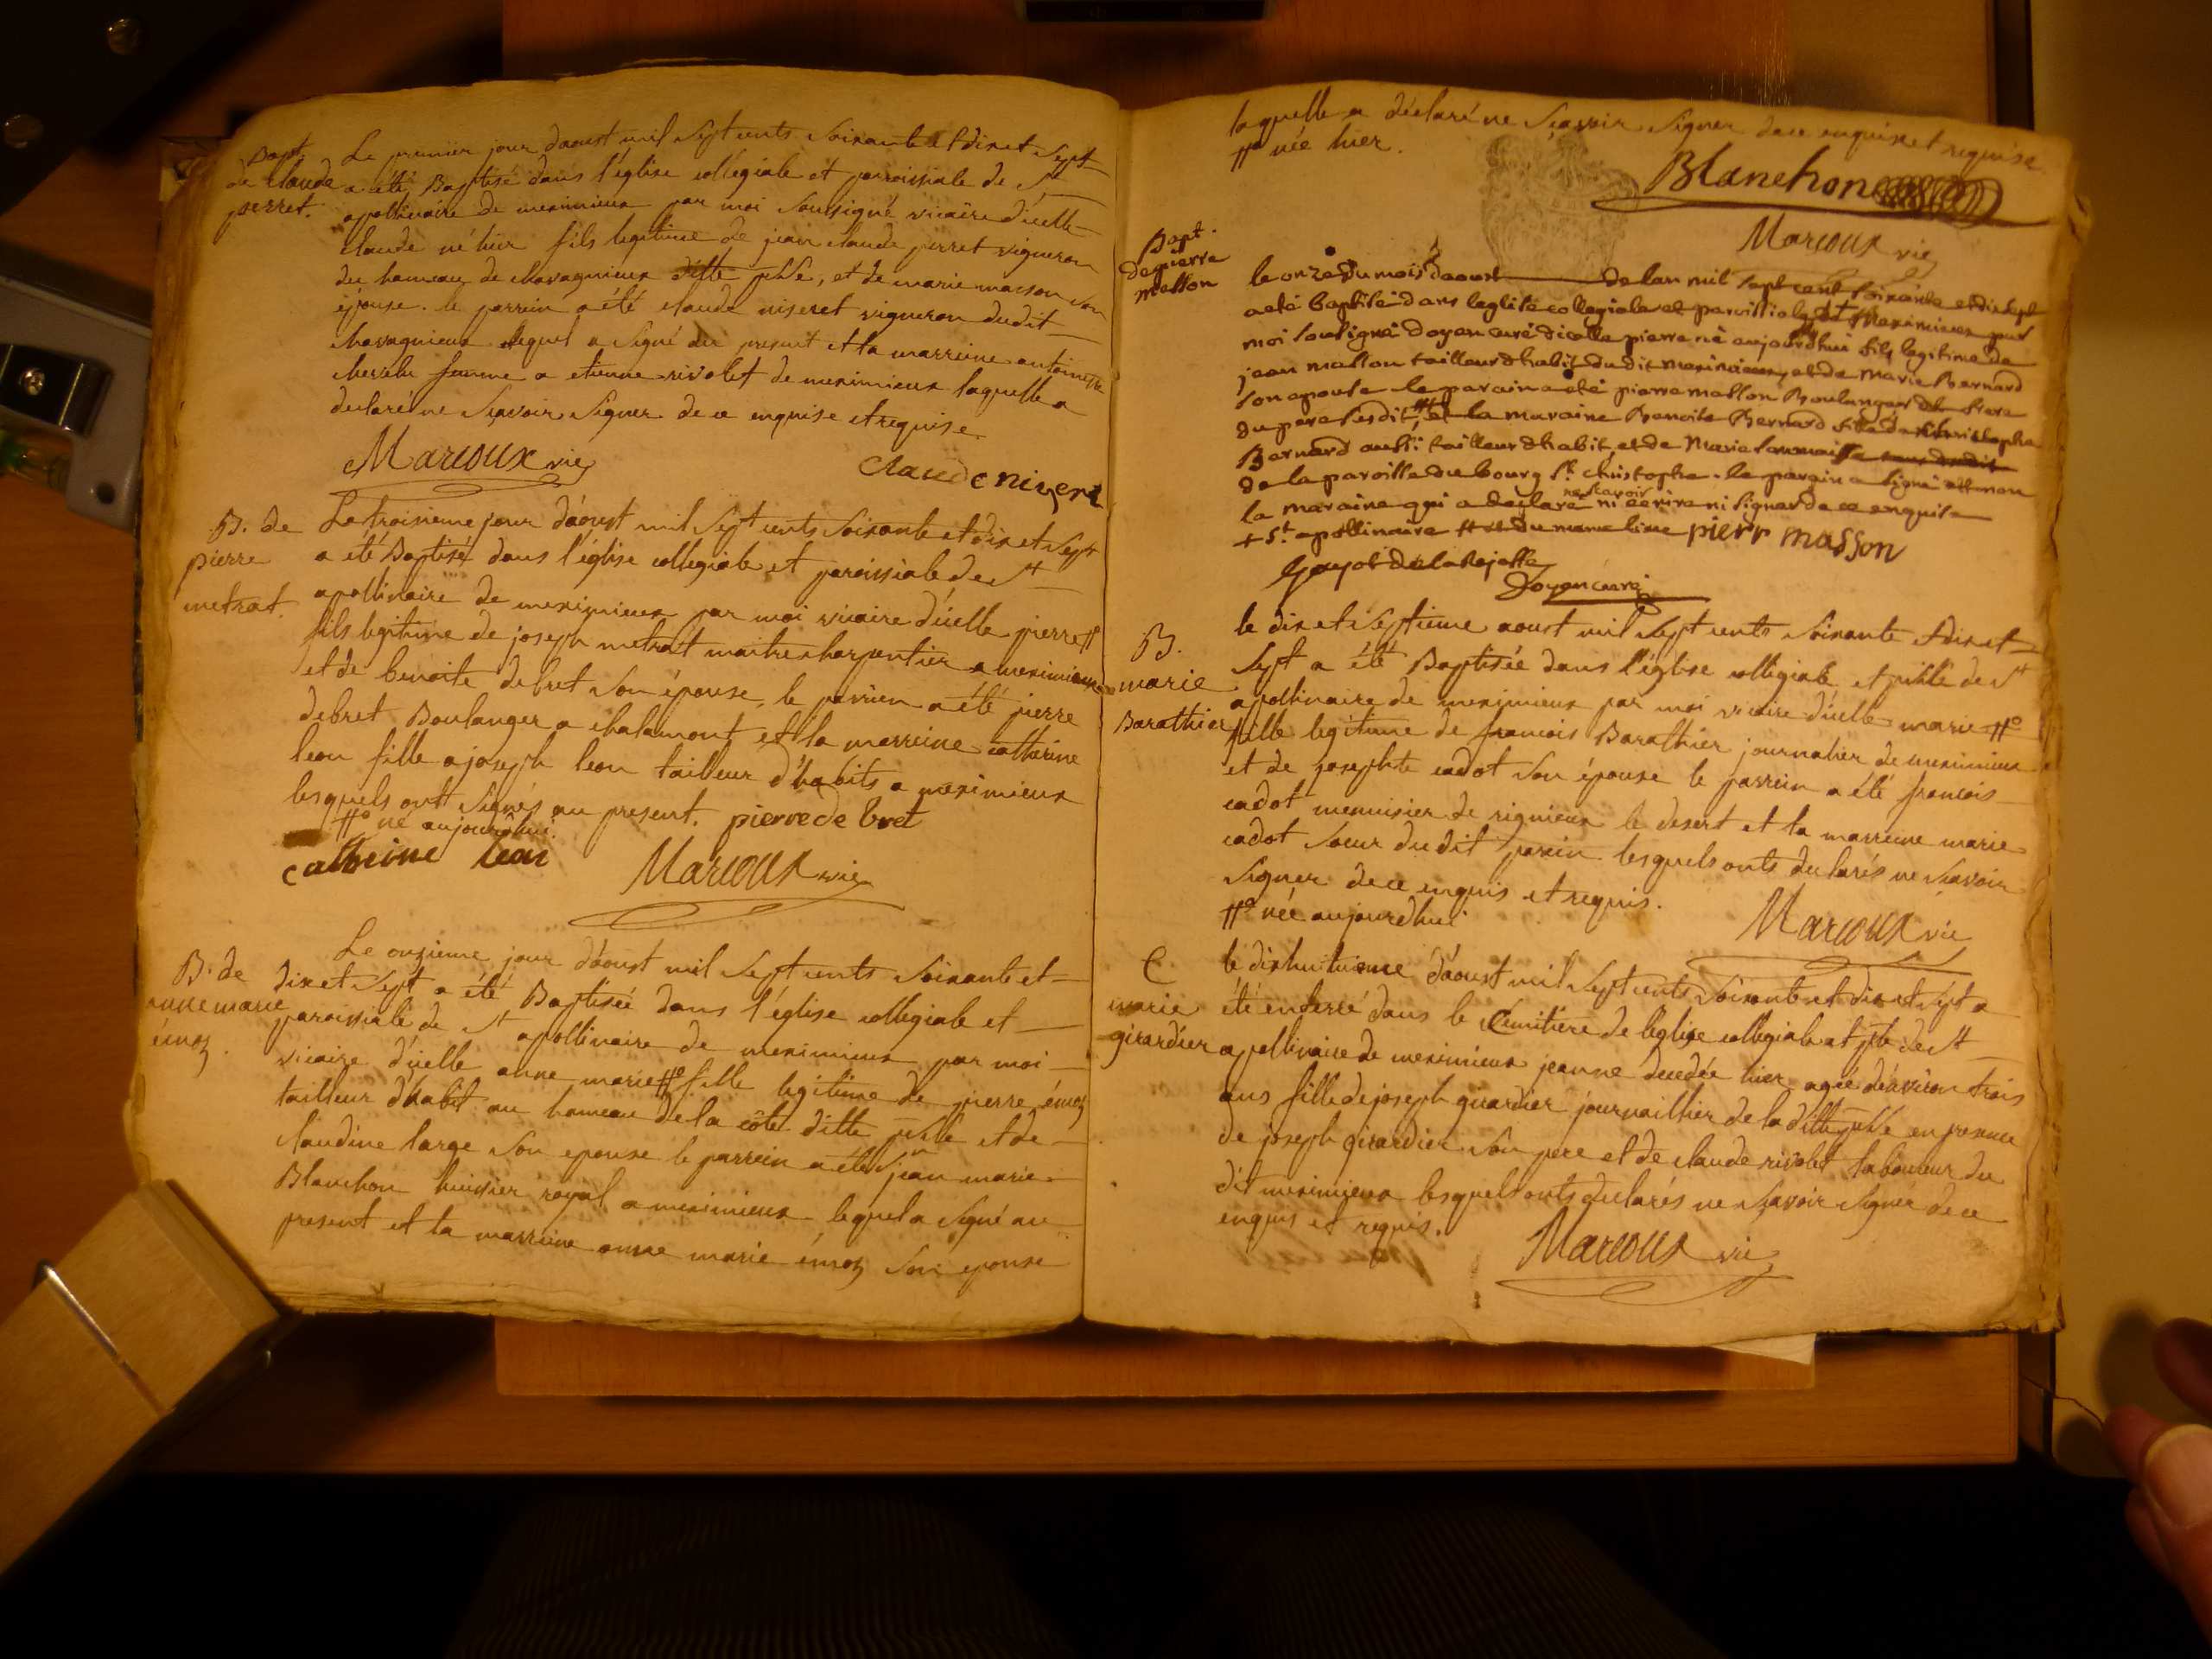 Bapt
de Claude
perret.
Le premier jour daoust mil sept cents soixante et dix et sept
a été Baptisé dans l'église collegiale et paroissiale de st
apollinaire de meximieux par moi soussigné vicaire d'icelle
claude né hier fils legitime de jean claude perret vigneron
du hameau de chavagnieux ditte psse, et de marie masson son
épouse. le parrein a été claude niseret vigneron dudit
chavagnieux lequel a signé au present et la marreine antoinette
chevelu femme a etienne rivolet de meximieux laquelle a
declaré ne sçavoir signer de ce enquise et requise
Marcoux vic
claude niseret
B. de
pierre
metrat.
Le troisieme jour d'aoust mil sept cents soixante et dix et sept
a été Baptisé dans l'église collegiale et paroissiale de st
apollinaire de meximieux par moi vicaire d'icelle pierre #
fils legitime de joseph metrat maitre charpentier a meximieux
et de benoite debret son épouse, le parrein a été pierre
debret Boulanger a chalamont et la marreine catherine
leon fille a joseph leon tailleur d'habits a meximieux
lesquels ont signés au present. pierre de bret
#° né aujourdhui.
catherine leon
Marcoux vic
B. de
anne marie
émoz.
Le onzieme jour d'aoust mil sept cents soixante et
dix et sept a été Baptisée dans l'église collegiale et
paroissiale de st apollinaire de meximieux par moi
vicaire d'icelle anne marie #° fille legitime de pierre émoz
tailleur d'habit au hameau de la côte ditte psse et de
claudine large son epouse le parrein a été sr jean marie
Blanchon huissier royal a meximieux lequel a signé au
present et la marreine anne marie émoz son epouse
laquelle a déclaré ne sçavoir signer de ce enquise et requise
#° née hier.
Blanchon
Marcoux vic
Bapt.
de pierre
masson
le onze du mois daoust de lan mil sept cent soixante et dix sept
a eté baptisé dans leglise collegiale et paroissiale de + Meximieux par
moi soussigné doyen curé dicelle pierre né aujourdhui fils legitime de
jean masson tailleur dhabit du dit meximieux, et de Marie Bernard
son epouse le parain a eté pierre masson Boulanger frere
du pere susdit, ## et la maraine Benoite Bernard fille de christophe
Bernard aussi tailleur dhabit, et de Marie
de la paroisse du bourg st. christophe. le parain a signé et non
la maraine qui a declaré ne scavoir ni ecrire ni signer de ce enquise
+ st. apollinaire ## du meme lieu pierr masson
Guyot de la Rajasse
Doyen curé
B.
marie
Barathier
le dix et septieme aoust mil sept cents soixante et dix et
sept a été Baptisée dans l'église collegiale et psslle de st
apollinaire de meximieux par moi vicaire d'icelle marie #°
fille legitime de francois Barathier journalier de meximieux
et de josephte cadot son épouse le parrein a été francois
cadot menuisier de rignieux le desert et la marreine marie
cadot soeur du dit parein lesquels onts declarés ne scavoir
signer de ce enquis et requis.
#° née aujourdhui
Marcoux vic
E
marie
girardier
le dix huitieme d'aoust mil sept cents soixante et dix et sept a
été enterré dans le cemitière de l'eglise collegiale et pslle de st
apollinaire de meximieux jeanne decedée hier agée d'aviron trois
ans fille de joseph girardier journaillier de la ditte psse en presence
de joseph girardier son pere et de claude rivolet laboureur du
dit meximieux lesquels onts declarés ne sçavoir signer de ce
enquis et requis.
Marcoux vic